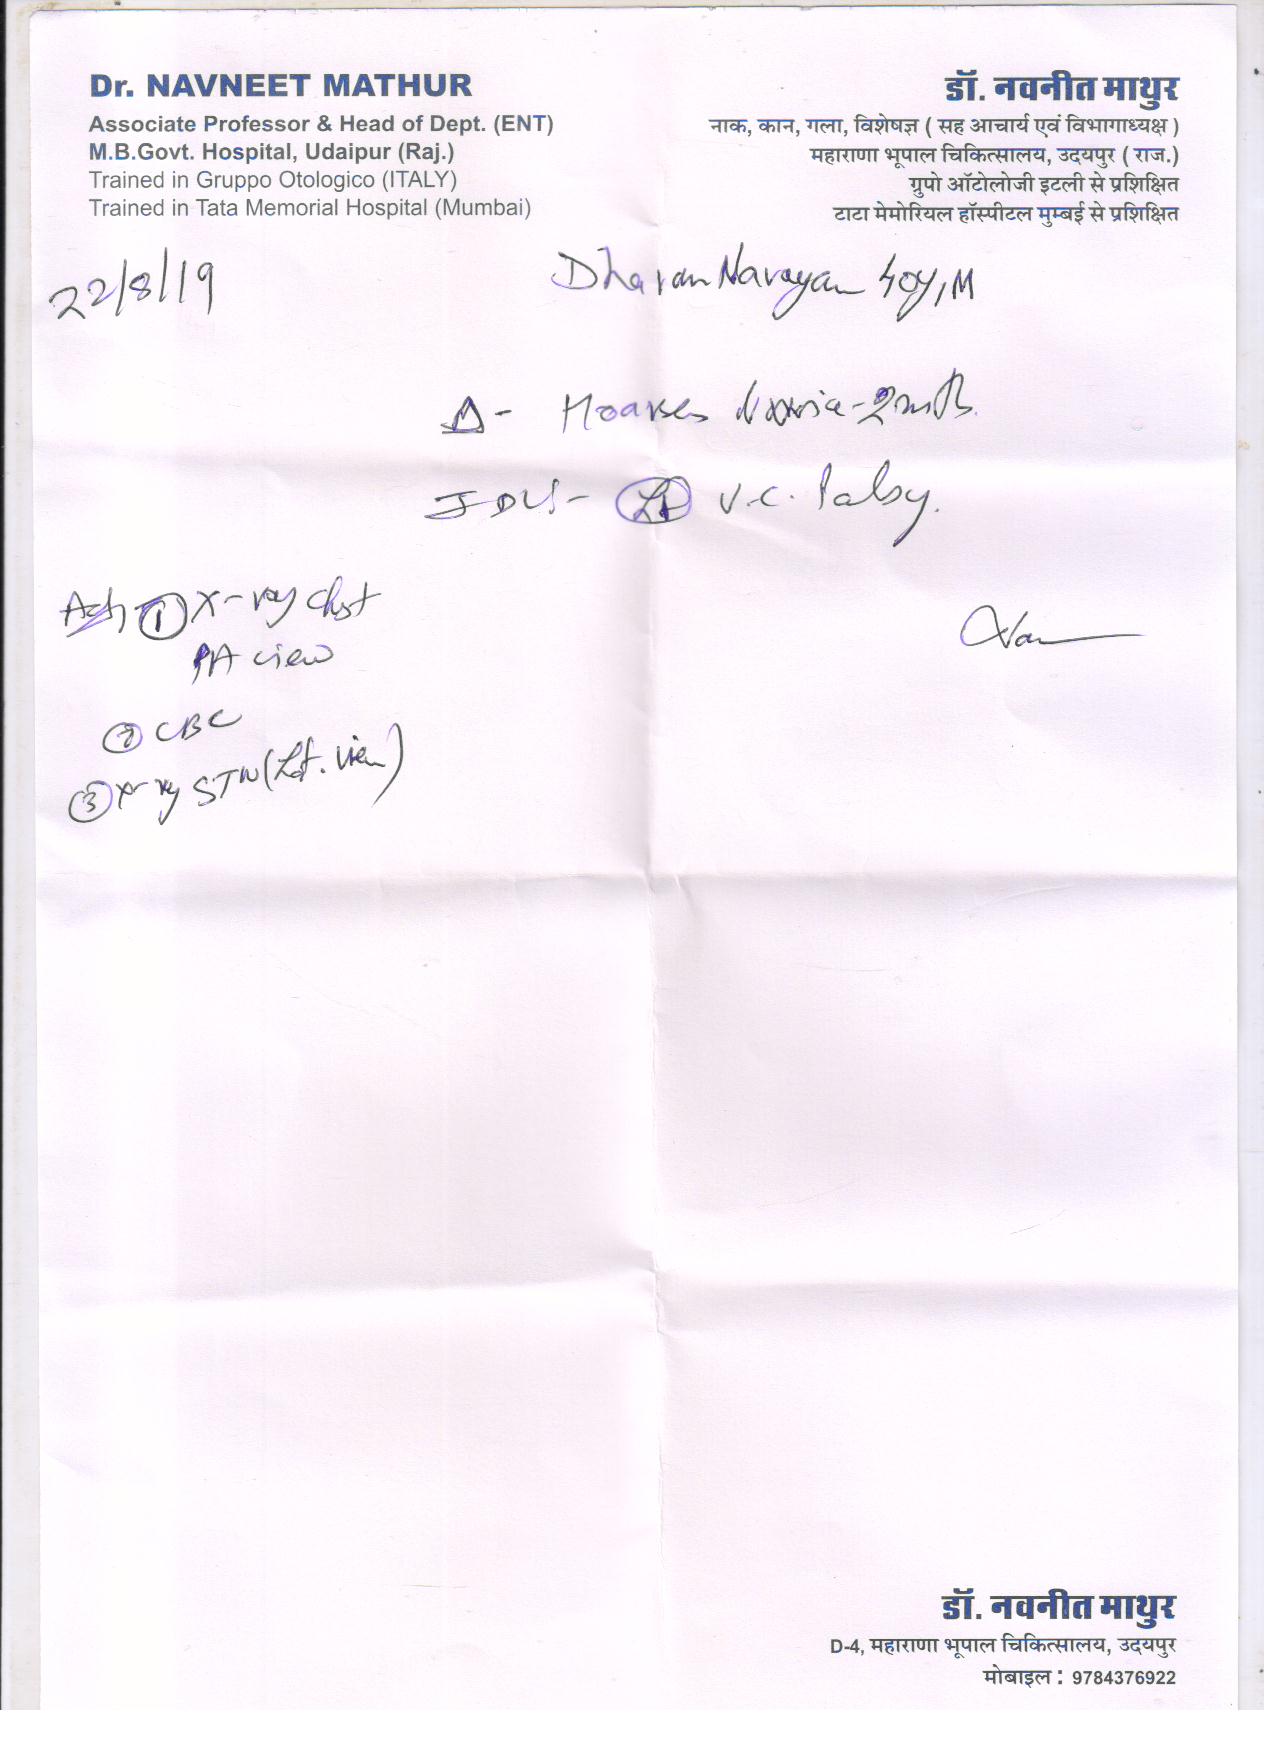 Dr. NAVNEET MATHUR
Associate Professor & Head of Dept. (ENT)
M.B.Govt. Hospital, Udaipur (Raj.)
Trained in Gruppo Otologico (ITALY)
Trained in Tata Memorial Hospital (Mumbai)
डॉ. नवनीत माथुर
नाक, कान, गला, विशेषज्ञ ( सह आचार्य एवं विभागाध्यक्ष )
महाराणा भूपाल चिकित्सालय, उदयपुर ( राज.)
ग्रुपो ऑटोलोजी इटली से प्रशिक्षित
टाटा मेमोरियल हॉस्पीटल मुम्बई से प्रशिक्षित
22/8/19
Narayan 40y/M
Δ-
V.C. Palsy.
① X-ray chest
PA view
② CBC
③ X-ray STN (Lat. view)
डॉ. नवनीत माथुर
D-4, महाराणा भूपाल चिकित्सालय, उदयपुर
मोबाइल : 9784376922